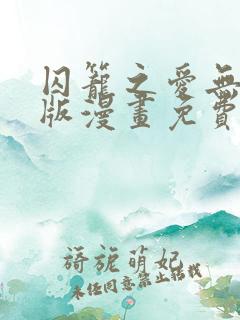 囚籠之愛無
版漫畫免費
旖旎萌妃
未经同意禁止转载